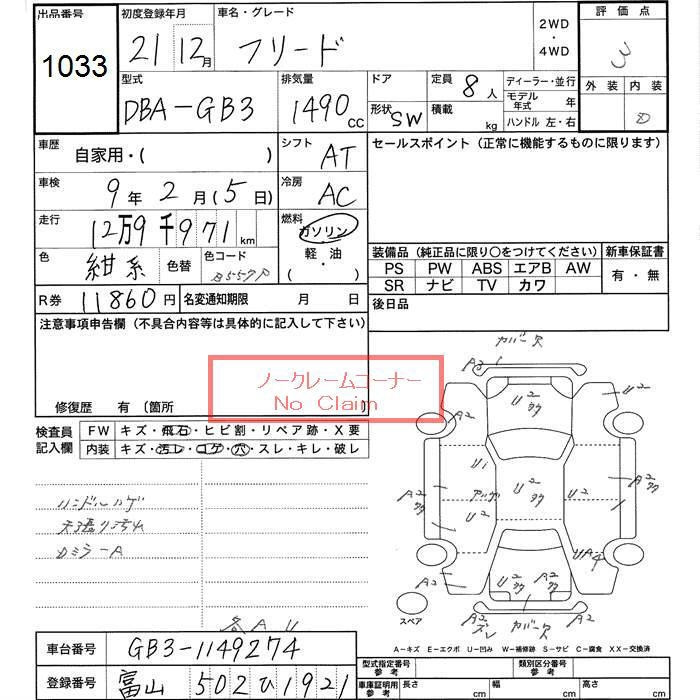 出品番号
1033
初度登録年月
21 12月
車名・グレード
フリード
2WD
・
4WD
評価点
3
外装 内装
D
型式
DBA-GB3
排気量
1490 cc
ドア
形状 SW
定員 8人
積載 kg
ディーラー・並行
モデル年式 年
ハンドル 左・右
車歴
自家用・( )
シフト
AT
セールスポイント（正常に機能するものに限ります）
車検
9年2月(5日)
冷房
AC
走行
12万9千971km
燃料
ガソリン
・
軽・油
( )
色
紺系
色替
色コード
B557P
装備品（純正品に限り○をつけてください）
PS PW ABS エアB AW
SR ナビ TV カワ
新車保証書
有・無
R券 11860円
名変通知期限 月 日
後日品
注意事項申告欄（不具合内容等は具体的に記入して下さい）
ノークレームコーナー
No Claim
修復歴 有〔箇所 〕
検査員記入欄
FW キズ・飛石・ヒビ割・リペア跡・X要
内装 キズ・汚レ・コゲ・穴・スレ・キレ・破レ
ハンドルハゲ
天張り汚れ
カミラーA
各AU
カバー欠
A3
U2
U2
ワワ
A2
Ui
A2
ワワ
U2
ワワ
U2
A2
ワワ
U2
UA4
A2
U2
ワワ
A2
ワワ
A2
A2
ズレ
カバー欠
A2
スペア
A-キズ E-エクボ U-凹み W-補修跡 S-サビ C-腐食 XX-交換済
車台番号
GB3-1149274
登録番号
富山 502 ひ 1921
型式指定番号 参考
類別区分番号 参考
車庫証明用 参考
長さ cm
幅 cm
高さ cm